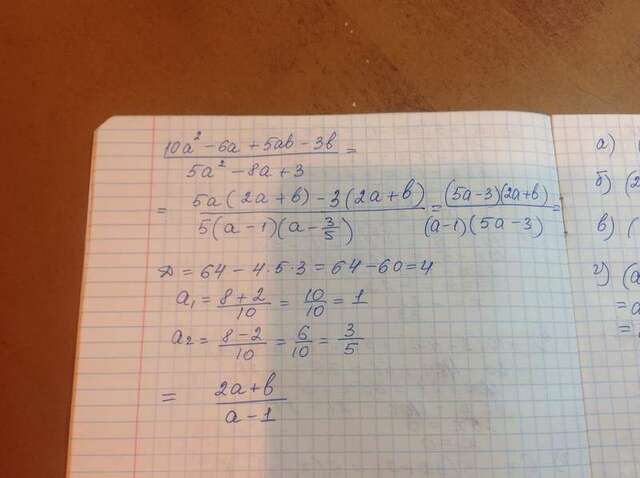 10a² - 6a + 5ab - 3b / 5a² - 8a + 3 =
= 5a(2a + b) - 3(2a + b) / 5(a - 1)(a - 3/5) = (5a - 3)(2a + b) / (a - 1)(5a - 3) =
D = 64 - 4·5·3 = 64 - 60 = 4
a₁ = 8 + 2 / 10 = 10/10 = 1
a₂ = 8 - 2 / 10 = 6/10 = 3/5
= 2a + b / a - 1
а) (
б) (2
в) (
г) (a
= a
=